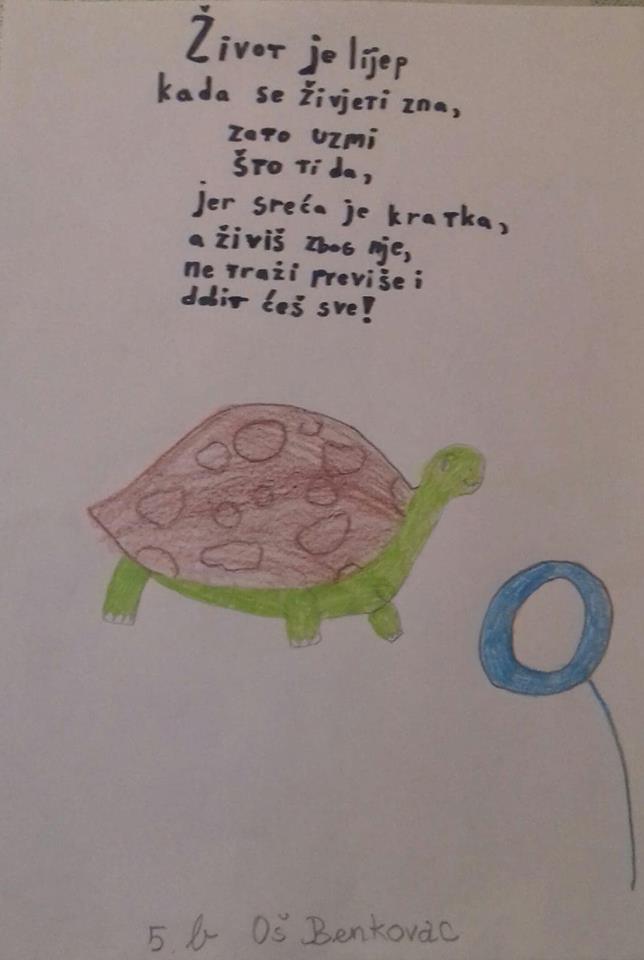 Život je lijep
kada se živjeti zna,
zato uzmi
što ti da,
jer sreća je kratka,
a živiš zbog nje,
ne traži previše i
dobit ćeš sve!
5. b Oš Benkovac